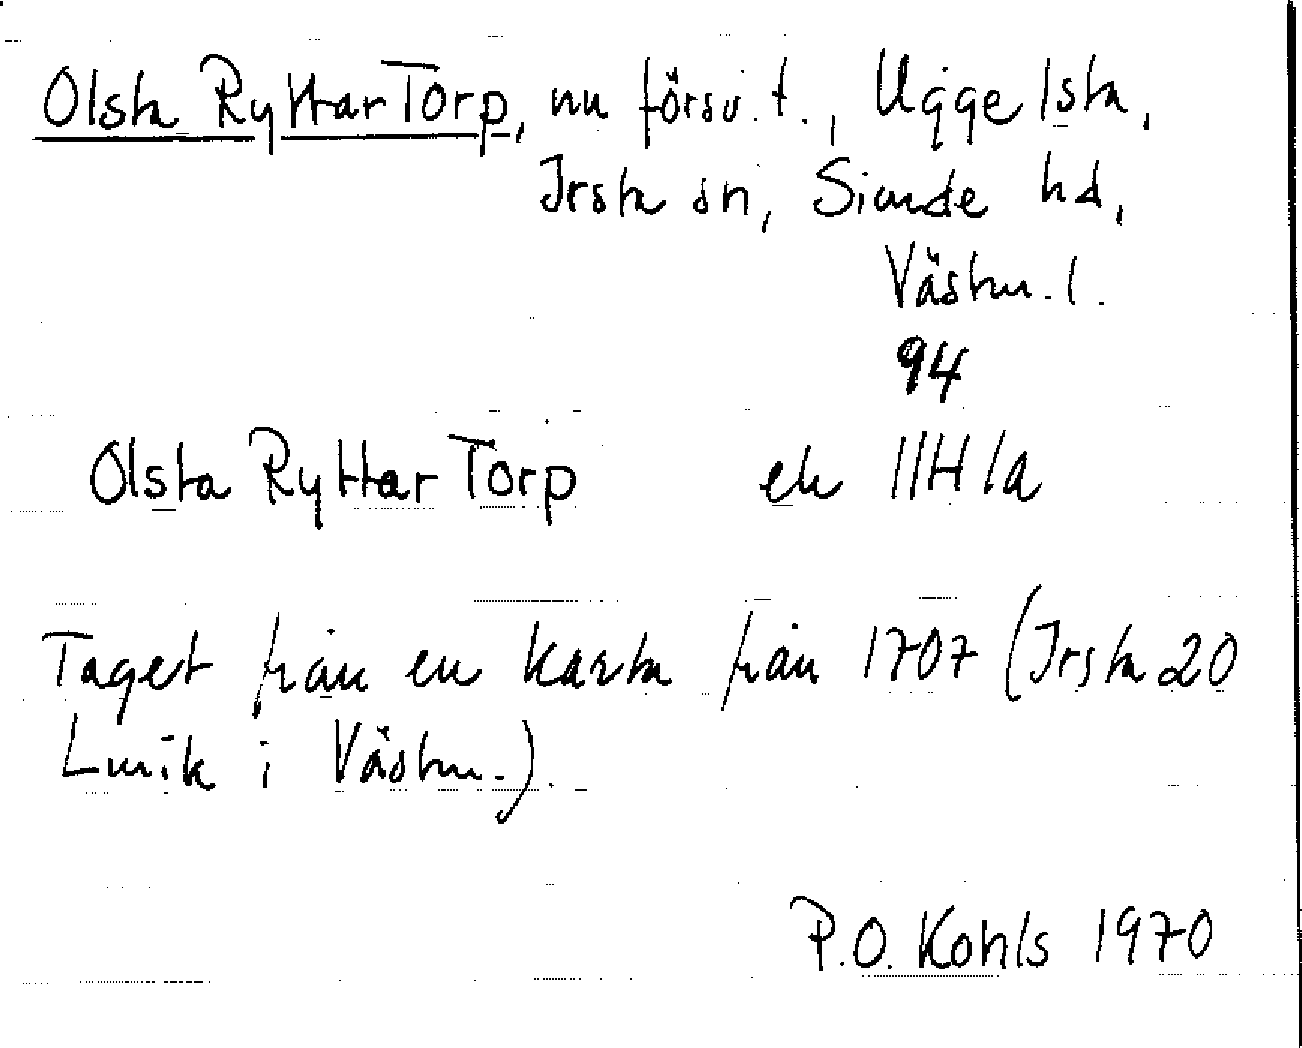 Olsta Ryttar Torp, nu försv. t., Uggelsta,
Irsta sn, Siende hd,
Västm. l.
94
Olsta Ryttar Torp ek 11H1a
Taget från en karta från 1707 (Irsta 20
Lmik i Västm.).
P.O. Kohls 1970